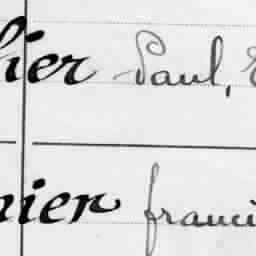 hier Paul, E
nier franci